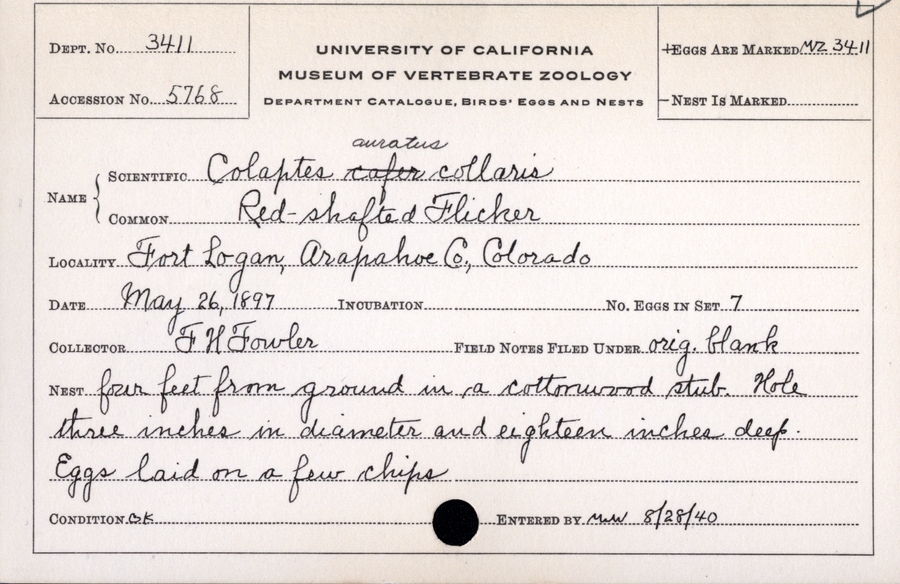 Dept. No. 3411
Accession No. 5768
UNIVERSITY OF CALIFORNIA
MUSEUM OF VERTEBRATE ZOOLOGY
Department Catalogue, Birds' Eggs and Nests
+Eggs Are Marked MVZ 3411
–Nest Is Marked
auratus
Name { Scientific Colaptes cafer collaris
Common Red-shafted Flicker
Locality Fort Logan, Arapahoe Co., Colorado
Date May 26, 1897 Incubation No. Eggs in Set 7
Collector F H Fowler Field Notes Filed Under orig. blank
Nest four feet from ground in a cottonwood stub. Hole
three inches in diameter and eighteen inches deep.
Eggs laid on a few chips
Condition OK Entered by MW 8/28/40